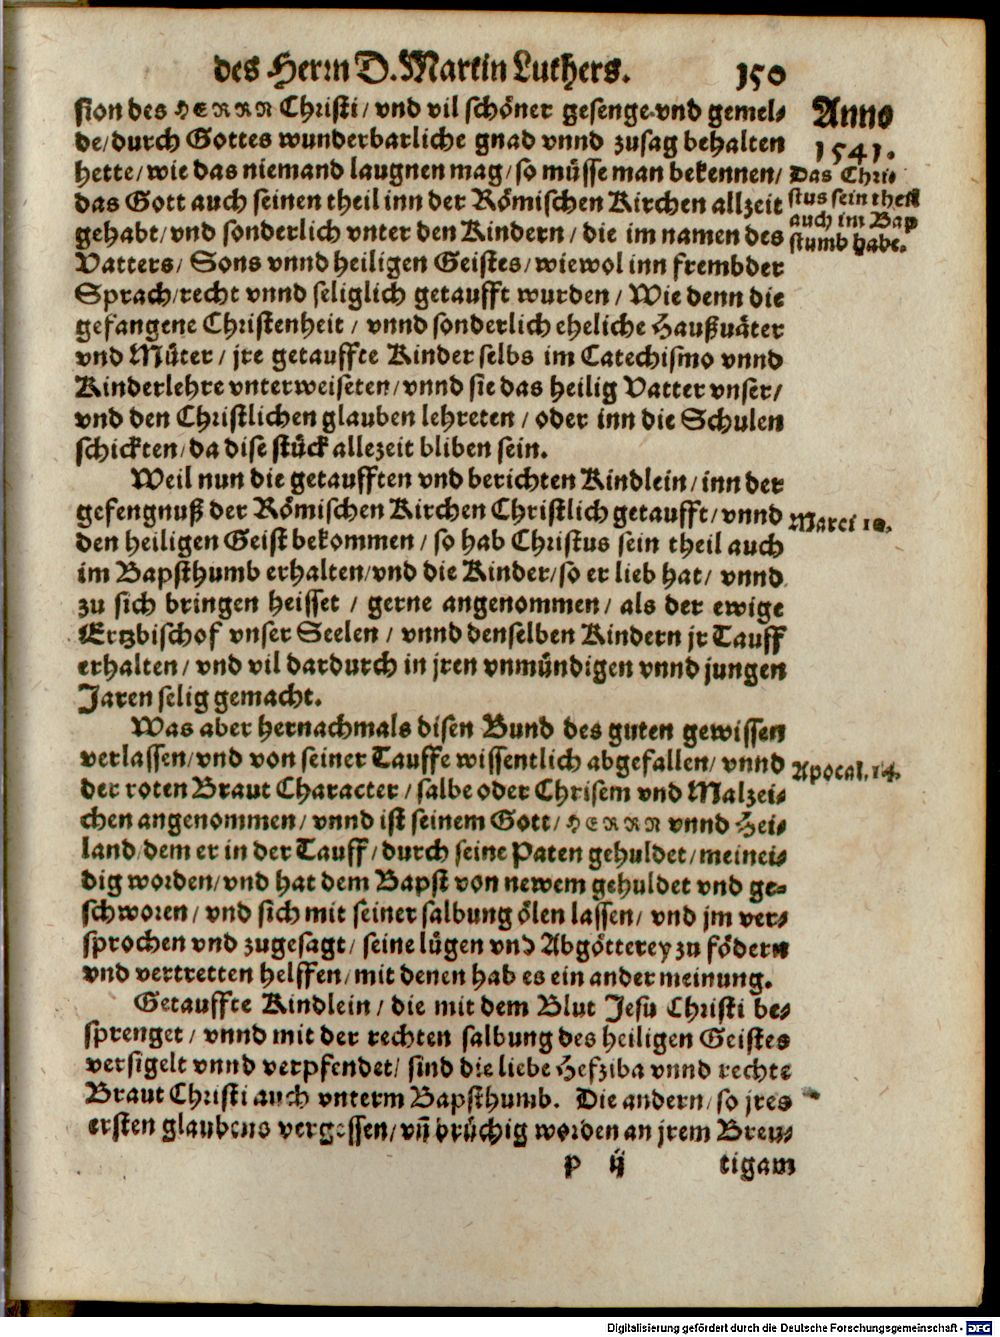 des Herrn D. Martin Luthers. 150
sion des HERRN Christi / vnd vil schöner gesenge vnd gemel⸗
de / durch Gottes wunderbarliche gnad vnnd zusag behalten
hette / wie das niemand laugnen mag / so müsse man bekennen /
das Gott auch seinen theil inn der Römischen Kirchen allzeit
gehabt / vnd sonderlich vnter den Kindern / die im namen des
Vatters / Sons vnnd heiligen Geistes / wiewol inn frembder
Sprach / recht vnnd seliglich getaufft wurden / Wie denn die
gefangene Christenheit / vnnd sonderlich eheliche Haußuäter
vnd Müter / jre getauffte Kinder selbs im Catechismo vnnd
Kinderlehre vnterweiseten / vnnd sie das heilig Vatter vnser /
vnd den Christlichen glauben lehreten / oder inn die Schulen
schickten / da dise stück allezeit bliben sein.
Anno
1541.
Das Chri⸗
stus sein theil
auch im Bap
stumb habe.
Weil nun die getaufften vnd berichten Kindlein / inn der
gefengnuß der Römischen Kirchen Christlich getaufft / vnnd
den heiligen Geist bekommen / so hab Christus sein theil auch
im Bapsthumb erhalten / vnd die Kinder / so er lieb hat / vnnd
zu sich bringen heisset / gerne angenommen / als der ewige
Ertzbischof vnser Seelen / vnnd denselben Kindern jr Tauff
erhalten / vnd vil dardurch in jren vnmündigen vnnd jungen
Jaren selig gemacht.
Marci 10.
Was aber hernachmals disen Bund des guten gewissen
verlassen / vnd von seiner Tauffe wissentlich abgefallen / vnnd
der roten Braut Character / salbe oder Chrisem vnd Malzei⸗
chen angenommen / vnnd ist seinem Gott / HERRN vnnd Hei⸗
land / dem er in der Tauff / durch seine Paten gehuldet / meinei⸗
dig worden / vnd hat dem Bapst von newem gehuldet vnd ge⸗
schworen / vnd sich mit seiner salbung ölen lassen / vnd jm ver⸗
sprochen vnd zugesagt / seine lügen vnd Abgötterey zu födern
vnd vertretten helffen / mit denen hab es ein ander meinung.
Apocal. 14.
Getauffte Kindlein / die mit dem Blut Jesu Christi be⸗
sprenget / vnnd mit der rechten salbung des heiligen Geistes
versigelt vnnd verpfendet / sind die liebe Hefziba vnnd rechte
Braut Christi auch vnterm Bapsthumb. Die andern / so jres
ersten glaubens vergessen / vn̄ brüchig worden an jrem Breu⸗
p ij tigam
Digitalisierung gefördert durch die Deutsche Forschungsgemeinschaft - DFG